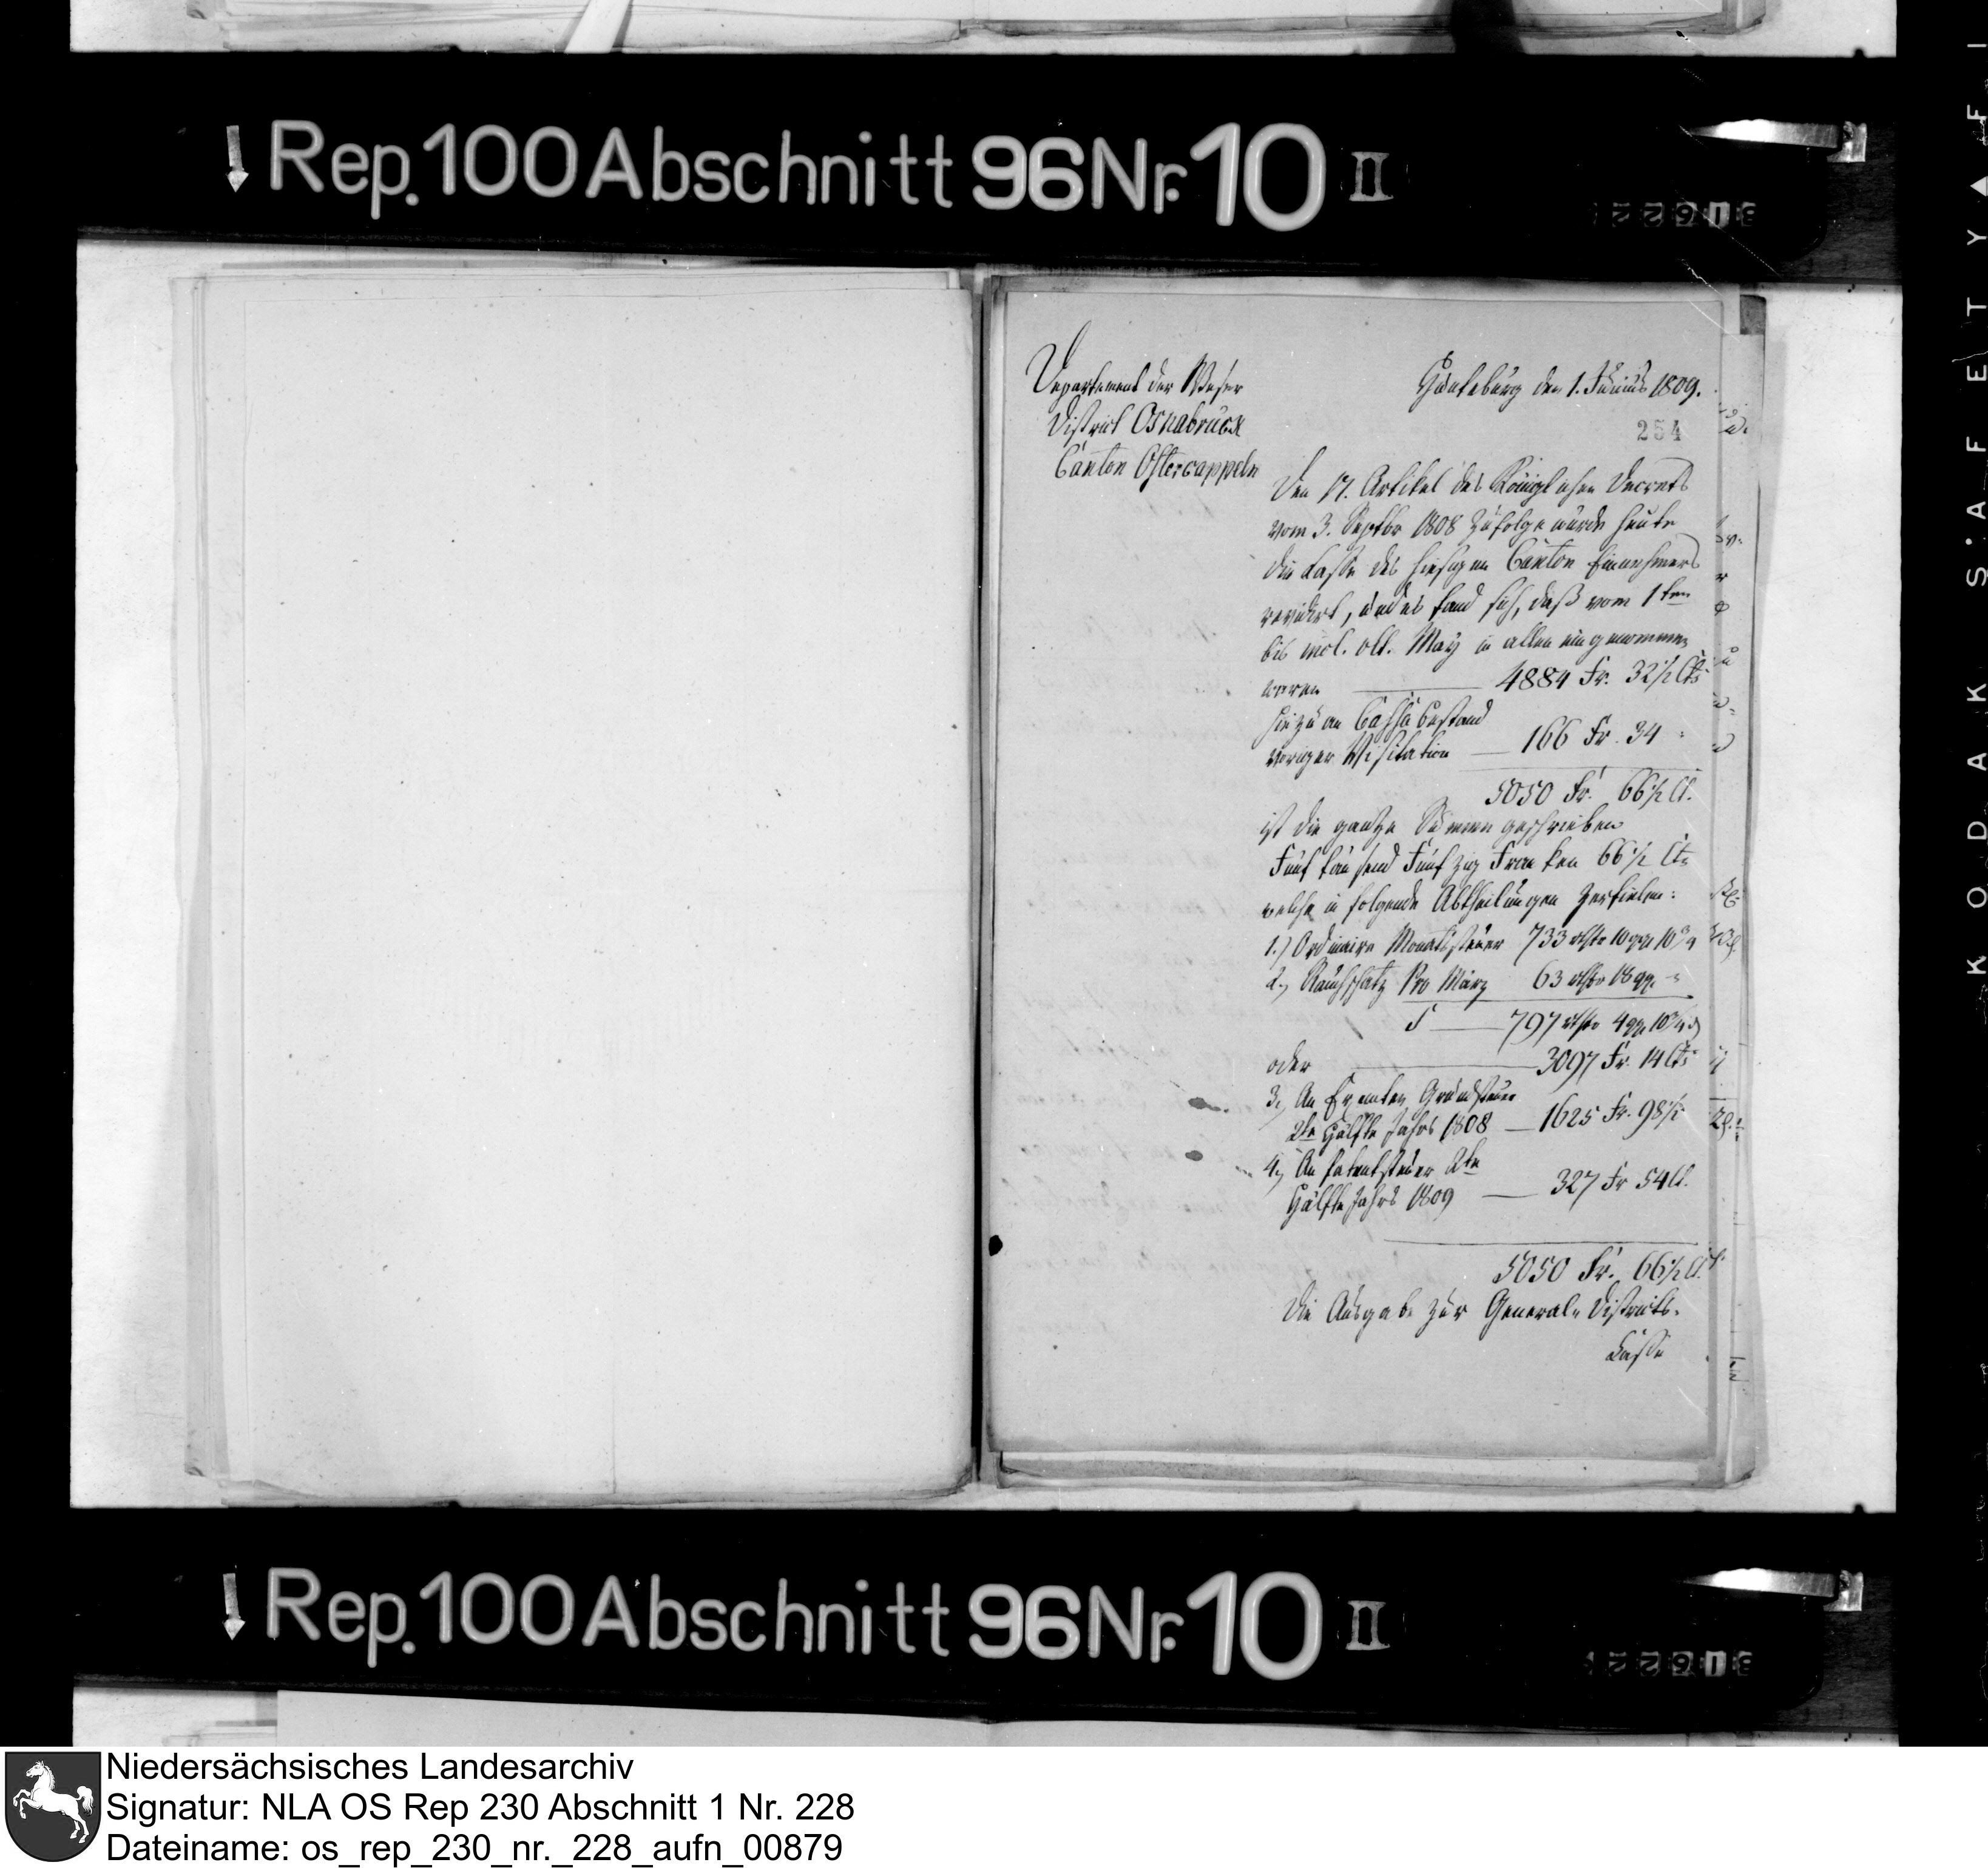 Rep. 100 Abschnitt 96 Nr. 10 II
Departement der Weser
District Osnabrück
Canton Ostercappeln
den 1. Junius 1809.
254
Den 17. Artikel des Königlichen Decrets
vom 3. Septbr 1808 zufolge wurde heute
die Casse des hiesigen Canton Einnehmers
revidirt, und es fand sich, daß vom 1ten
bis incl. ult. May in allen eingenommen
waren 4884 Fr. 32½ Cts
hiezu an Cassa bestand
voriger Visitation 166 Fr. 34
5050 Fr. 66½ Ct.
ist die gantze Summe geschrieben
Fünf tausend Fünfzig Franken 66½ Cts
welche in folgende Abtheilungen zerfielen:
1.) Ordinaire Monatssteuer 733 rthlr 10 ggr 10¾
2.) Rauchschatz Pro März 63 rthlr 18 ggr.
S 797 rthlr 4 ggr 10¾ d
oder 3097 Fr. 14 Cts
3.) An Exemten Grundsteuer
2te Hälfte Jahrs 1808 1625 Fr. 98½
4.) An Patentsteuer 2te
Hälfte Jahrs 1809 327 Fr 54 Ct.
5050 Fr. 66½ Ct.
Die Ausgabe zur General- Districts-
Casse
Rep. 100 Abschnitt 96 Nr. 10 II
KODAK SAFETY FI
Niedersächsisches Landesarchiv
Signatur: NLA OS Rep 230 Abschnitt 1 Nr. 228
Dateiname: os_rep_230_nr._228_aufn_00879